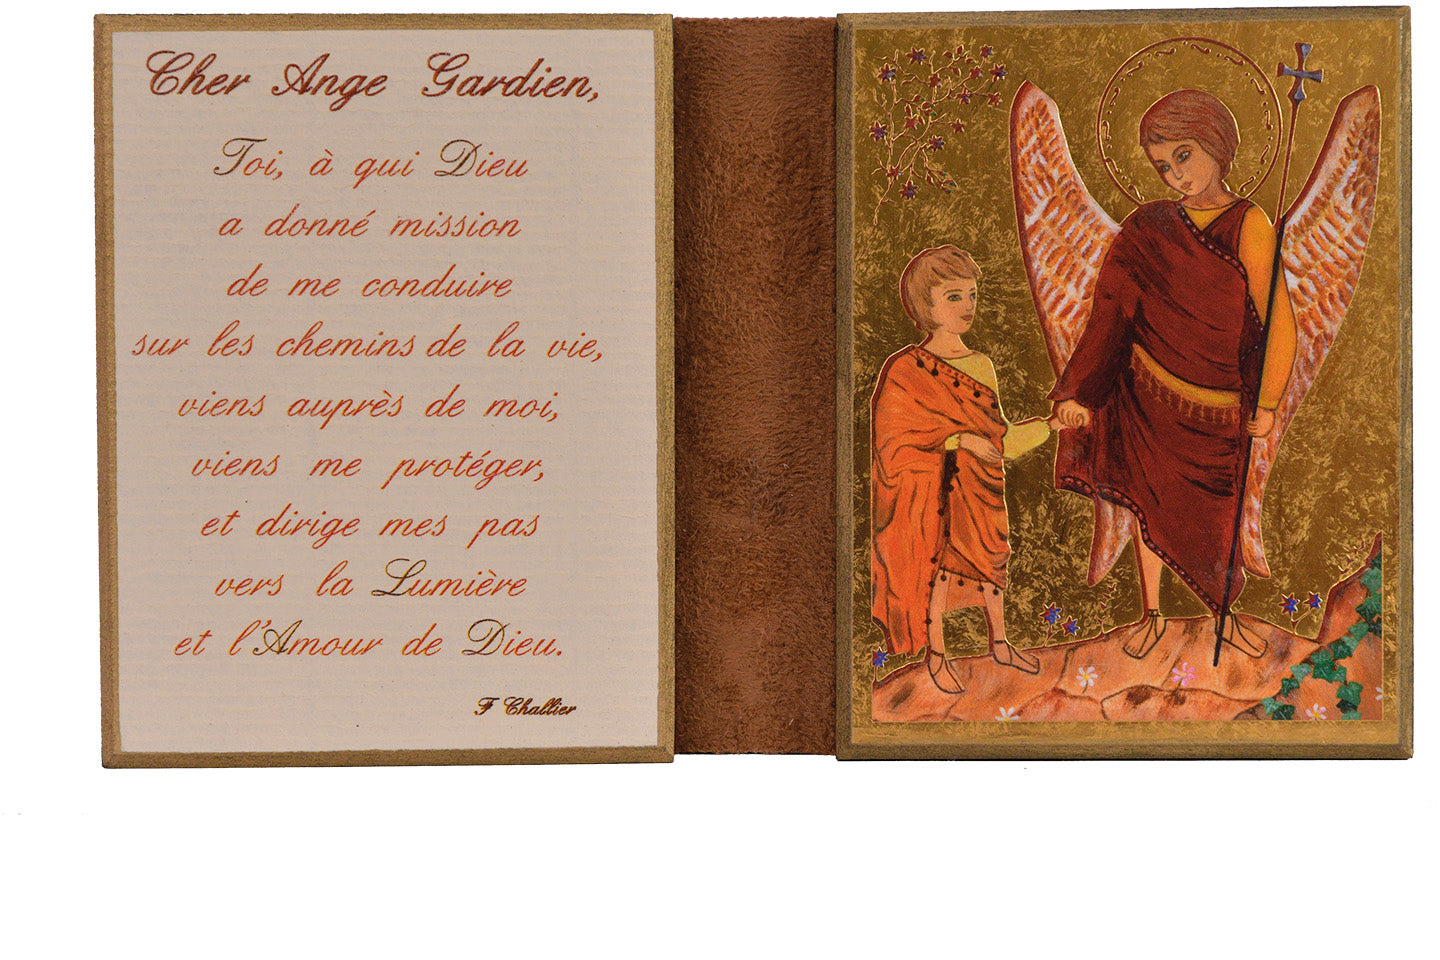 Cher Ange Gardien,
Toi, à qui Dieu
a donné mission
de me conduire
sur les chemins de la vie,
viens auprès de moi,
viens me protéger,
et dirige mes pas
vers la Lumière
et l'Amour de Dieu.
F Challier